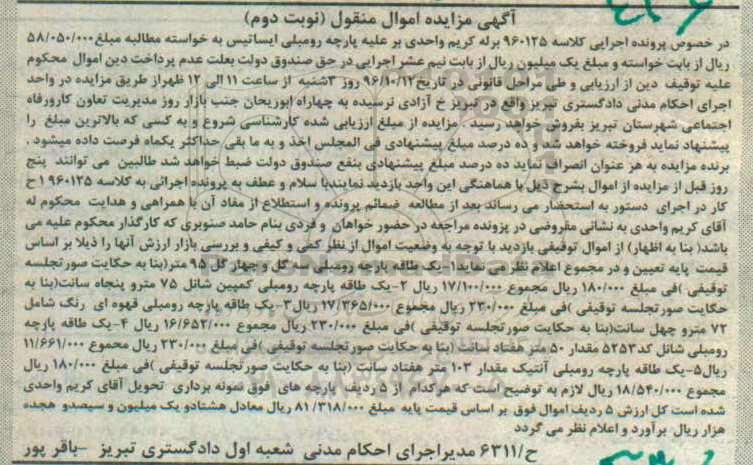 آگهی مزایده اموال منقول (نوبت دوم)
در خصوص پرونده اجرایی کلاسه ۹۶۰۱۲۵ برله کریم واحدی بر علیه پارچه رومبلی ایساتیس به خواسته مطالبه مبلغ ۵۸/۰۵۰/۰۰۰
ریال از بابت خواسته و مبلغ یک میلیون ریال از بابت نیم عشر اجرایی در حق صندوق دولت بعلت عدم پرداخت دین اموال محکوم
علیه توقیف دین از ارزیابی و طی مراحل قانونی در تاریخ ۹۶/۱۰/۱۲ روز ۳شنبه از ساعت ۱۱ الی ۱۲ ظهراز طریق مزایده در واحد
اجرای احکام مدنی دادگستری تبریز واقع در تبریز خ آزادی نرسیده به چهاراه ابوریحان جنب بازار روز مدیریت تعاون کارورفاه
اجتماعی شهرستان تبریز بفروش خواهد رسید . مزایده از مبلغ ارزیابی شده کارشناسی شروع و به کسی که بالاترین مبلغ را
پیشنهاد نماید فروخته خواهد شد و ده درصد مبلغ پیشنهادی فی المجلس اخذ و به ما بقی حداکثر یکماه فرصت داده میشود .
برنده مزایده به هر عنوان انصراف نماید ده درصد مبلغ پیشنهادی بنفع صندوق دولت ضبط خواهد شد طالبین می توانند پنج
روز قبل از مزایده از اموال بشرح ذیل با هماهنگی این واحد بازدید نمایندبا سلام و عطف به پرونده اجرائی به کلاسه ۹۶۰۱۲۵ ۱ ح
کار در اجرای دستور به استحضار می رساند بعد از مطالعه ضمائم پرونده و استطلاع از مفاد آن با همراهی و هدایت محکوم له
آقای کریم واحدی به نشانی مفروضی در پرونده مراجعه در حضور خواهان و فردی بنام حامد صنوبری که کارگذار محکوم علیه می
باشد( بنا به اظهار) از اموال توقیفی بازدید با توجه به وضعیت اموال از نظر کمی و کیفی و بررسی بازار ارزش آنها را ذیلا بر اساس
قیمت پایه تعیین و در مجموع اعلام نظر می نماید۱- یک طاقه پارچه رومبلی ده گل و چهار گل ۹۵ متر(بنا به حکایت صورتجلسه
توقیفی )فی مبلغ ۱۸۰/۰۰۰ ریال مجموع ۱۷/۱۰۰/۰۰۰ ریال ۲-یک طاقه پارچه رومبلی کمپین شانل ۷۵ مترو پنجاه سانت(بنا به
حکایت صورتجلسه توقیفی )فی مبلغ ۲۳۰/۰۰۰ ریال مجموع ۱۷/۳۶۵/۰۰۰ ریال۳-یک طاقه پارچه رومبلی قهوه ای رنگ شامل
۷۲ مترو چهل سانت(بنا به حکایت صورتجلسه توقیفی )فی مبلغ ۲۳۰/۰۰۰ ریال مجموع ۱۶/۶۵۲/۰۰۰ ریال ۴-یک طاقه پارچه
رومبلی شانل کد۵۲۵۳ مقدار ۵۰ متر هفتاد سانت (بنا به حکایت صورتجلسه توقیفی )فی مبلغ ۲۳۰/۰۰۰ ریال مجموع ۱۱/۶۶۱/۰۰۰
ریال۵-یک طاقه پارچه رومبلی آنتیک مقدار ۱۰۳ متر هفتاد سانت (بنا به حکایت صورتجلسه توقیفی )فی مبلغ ۱۸۰/۰۰۰ ریال
مجموع ۱۸/۵۴۰/۰۰۰ ریال لازم به توضیح است که هرکدام از ۵ ردیف پارچه های فوق نمونه برداری تحویل آقای کریم واحدی
شده است کل ارزش ۵ ردیف اموال فوق بر اساس قیمت پایه مبلغ ۸۱/۳۱۸/۰۰۰ ریال معادل هشتادو یک میلیون و سیصدو هجده
هزار ریال برآورد و اعلام نظر می گردد
ح/۶۳۱۱ مدیراجرای احکام مدنی شعبه اول دادگستری تبریز -باقر پور